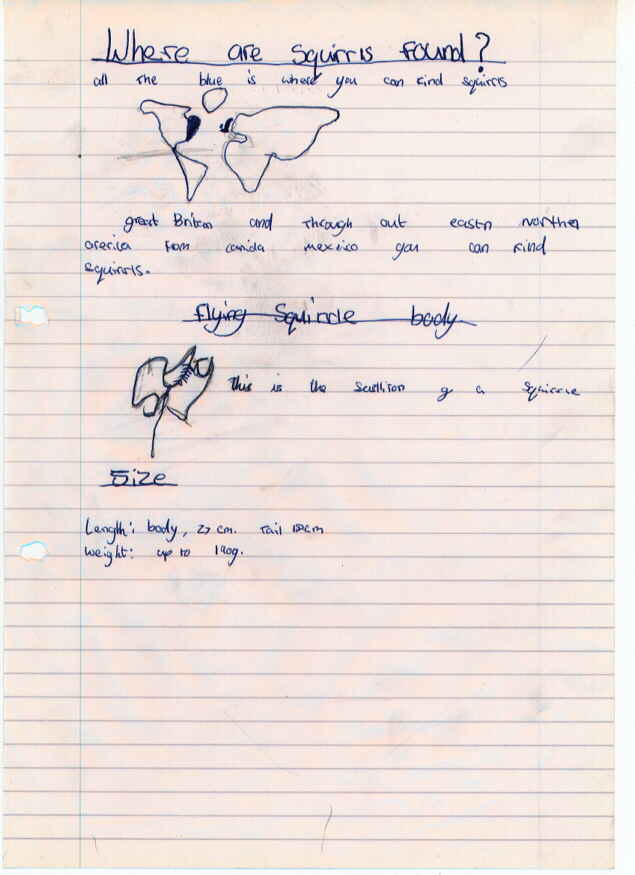 Where are squirris found?
all the blue is where you can find squirris
great Britan and through out eastn northen
from canida mexico you can find
squirris.
flying Squirrle body
this is the a
Size
Length: body, 27 cm. tail cm
weight: up to 190g.